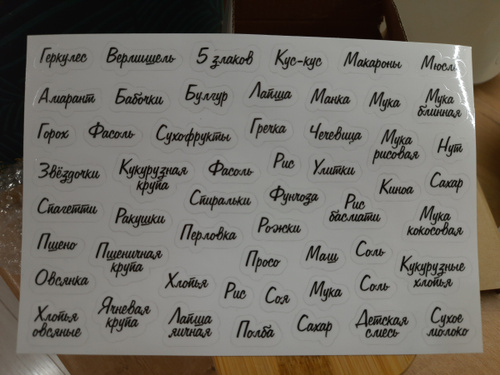 Геркулес Вермишель 5 злаков Кус-кус Макароны Мюсли
Амарант Бабочки Булгур Лапша Манка Мука Мука
блинная
Горох Фасоль Сухофрукты Гречка Чечевица Мука
рисовая Нут
Звёздочки Кукурузная
крупа Фасоль Рис Улитки Киноа Сахар
Спагетти Ракушки Спиральки Фунчоза Рис
басмати Мука
кокосовая
Пшено Пшеничная
крупа Перловка Рожки Просо Маш Соль Кукурузные
хлопья
Овсянка Хлопья Рис Соя Мука Соль
Хлопья
овсяные Ячневая
крупа Лапша
яичная Полба Сахар Детская
смесь Сухое
молоко